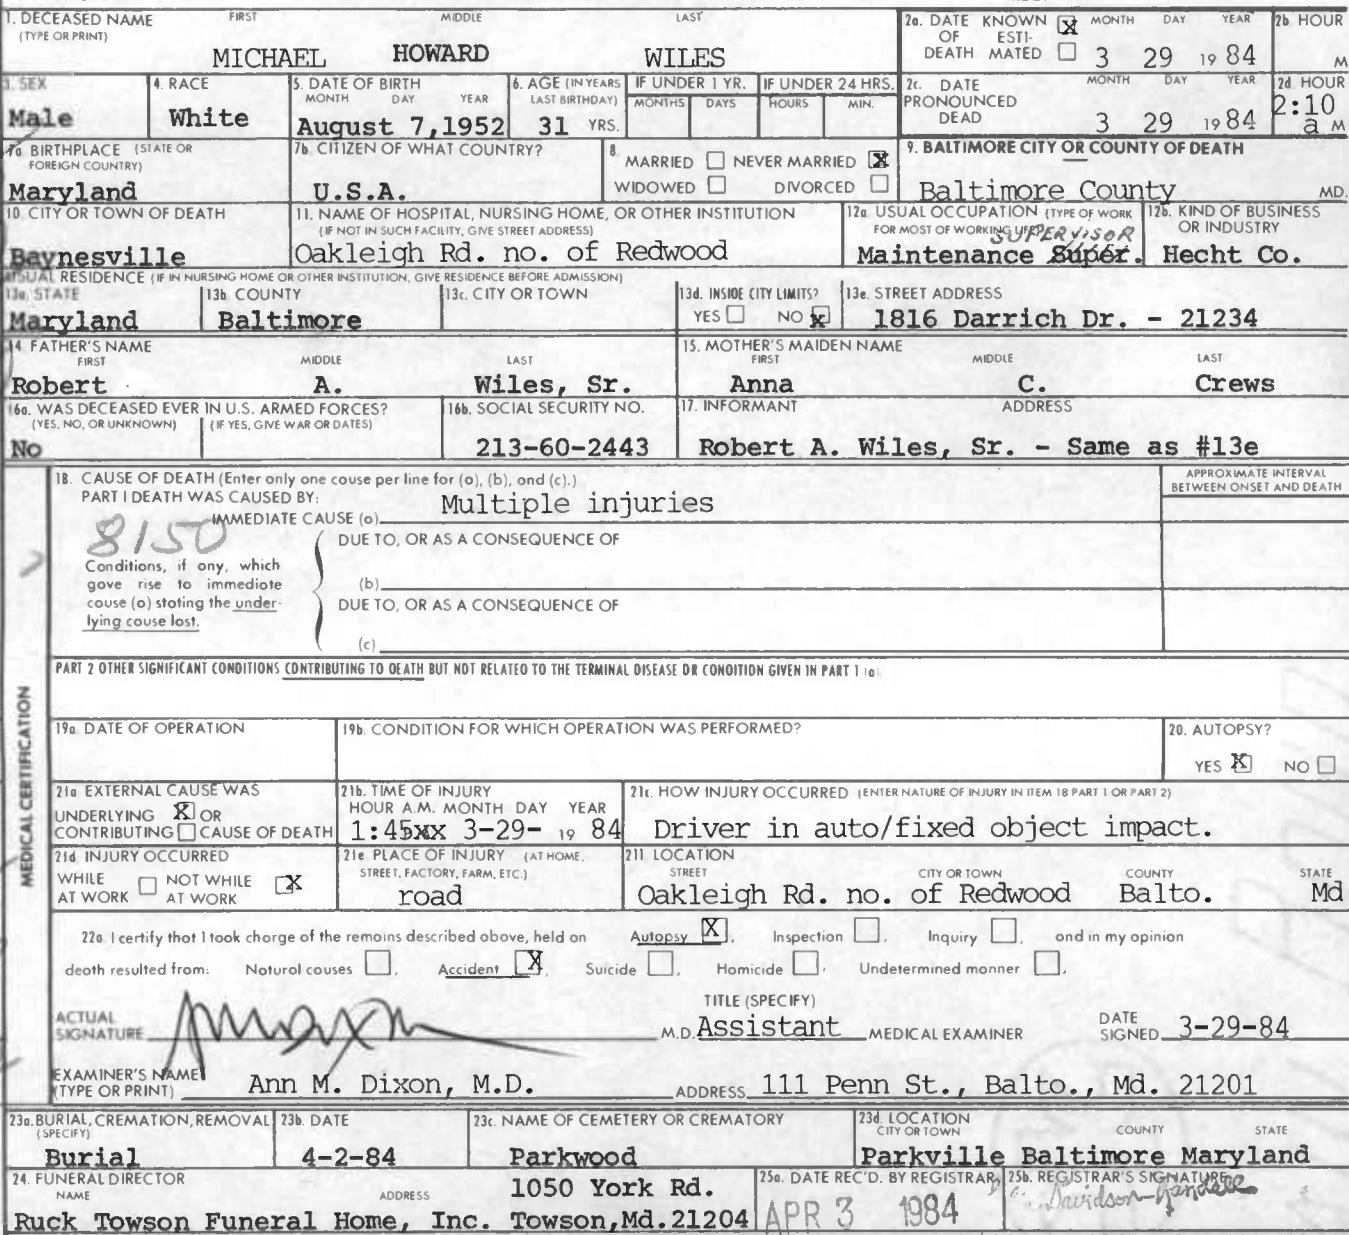 1. DECEASED NAME FIRST MIDDLE LAST
(TYPE OR PRINT)
MICHAEL HOWARD WILES
2a. DATE KNOWN X MONTH DAY YEAR
OF ESTI-
DEATH MATED 3 29 19 84
2b HOUR
M
3. SEX
Male
4. RACE
White
5. DATE OF BIRTH
MONTH DAY YEAR
August 7,1952
6. AGE (IN YEARS
LAST BIRTHDAY)
31 YRS.
IF UNDER 1 YR.
MONTHS DAYS
IF UNDER 24 HRS.
HOURS MIN.
2c. DATE MONTH DAY YEAR
PRONOUNCED
DEAD 3 29 19 84
2d HOUR
2:10
a M
7a BIRTHPLACE (STATE OR
FOREIGN COUNTRY)
Maryland
7b. CITIZEN OF WHAT COUNTRY?
U.S.A.
8. MARRIED NEVER MARRIED X
WIDOWED DIVORCED
9. BALTIMORE CITY OR COUNTY OF DEATH
Baltimore County MD.
10 CITY OR TOWN OF DEATH
Baynesville
11. NAME OF HOSPITAL, NURSING HOME, OR OTHER INSTITUTION
(IF NOT IN SUCH FACILITY, GIVE STREET ADDRESS)
Oakleigh Rd. no. of Redwood
12a. USUAL OCCUPATION (TYPE OF WORK
FOR MOST OF WORKING LIFE)
SUPERVISOR
Maintenance Super.
12b. KIND OF BUSINESS
OR INDUSTRY
Hecht Co.
USUAL RESIDENCE (IF IN NURSING HOME OR OTHER INSTITUTION, GIVE RESIDENCE BEFORE ADMISSION)
13a. STATE
Maryland
13b. COUNTY
Baltimore
13c. CITY OR TOWN
13d. INSIDE CITY LIMITS?
YES NO X
13e. STREET ADDRESS
1816 Darrich Dr. - 21234
14. FATHER'S NAME
FIRST MIDDLE LAST
Robert A. Wiles, Sr.
15. MOTHER'S MAIDEN NAME
FIRST MIDDLE LAST
Anna C. Crews
16a. WAS DECEASED EVER IN U.S. ARMED FORCES?
(YES, NO, OR UNKNOWN) (IF YES, GIVE WAR OR DATES)
No
16b. SOCIAL SECURITY NO.
213-60-2443
17. INFORMANT ADDRESS
Robert A. Wiles, Sr. - Same as #13e
MEDICAL CERTIFICATION
18. CAUSE OF DEATH (Enter only one cause per line for (a), (b), and (c).)
PART I DEATH WAS CAUSED BY:
IMMEDIATE CAUSE (a) Multiple injuries
APPROXIMATE INTERVAL
BETWEEN ONSET AND DEATH
8150
DUE TO, OR AS A CONSEQUENCE OF
Conditions, if any, which
gave rise to immediate
cause (a) stating the under-
lying cause last.
(b)
DUE TO, OR AS A CONSEQUENCE OF
(c)
PART 2 OTHER SIGNIFICANT CONDITIONS CONTRIBUTING TO DEATH BUT NOT RELATED TO THE TERMINAL DISEASE OR CONDITION GIVEN IN PART 1 (a)
19a. DATE OF OPERATION
19b. CONDITION FOR WHICH OPERATION WAS PERFORMED?
20. AUTOPSY?
YES X NO
21a EXTERNAL CAUSE WAS
UNDERLYING X OR
CONTRIBUTING CAUSE OF DEATH
21b. TIME OF INJURY
HOUR A.M. MONTH DAY YEAR
1:45xx 3-29- 19 84
21c. HOW INJURY OCCURRED (ENTER NATURE OF INJURY IN ITEM 18 PART 1 OR PART 2)
Driver in auto/fixed object impact.
21d INJURY OCCURRED
WHILE NOT WHILE X
AT WORK AT WORK
21e PLACE OF INJURY (AT HOME,
STREET, FACTORY, FARM, ETC.)
road
21f. LOCATION
STREET CITY OR TOWN COUNTY STATE
Oakleigh Rd. no. of Redwood Balto. Md
22a I certify that I took charge of the remains described above, held on Autopsy X, Inspection, Inquiry, and in my opinion
death resulted from: Natural causes, Accident X, Suicide, Homicide, Undetermined manner.
ACTUAL
SIGNATURE
M.D.
TITLE (SPECIFY)
Assistant MEDICAL EXAMINER
DATE
SIGNED 3-29-84
EXAMINER'S NAME
(TYPE OR PRINT) Ann M. Dixon, M.D. ADDRESS 111 Penn St., Balto., Md. 21201
23a. BURIAL, CREMATION, REMOVAL
(SPECIFY)
Burial
23b. DATE
4-2-84
23c. NAME OF CEMETERY OR CREMATORY
Parkwood
23d. LOCATION
CITY OR TOWN COUNTY STATE
Parkville Baltimore Maryland
24. FUNERAL DIRECTOR
NAME ADDRESS
1050 York Rd.
Ruck Towson Funeral Home, Inc. Towson,Md.21204
25a. DATE REC'D. BY REGISTRAR
APR 3 1984
25b. REGISTRAR'S SIGNATURE
Davidson-Randall